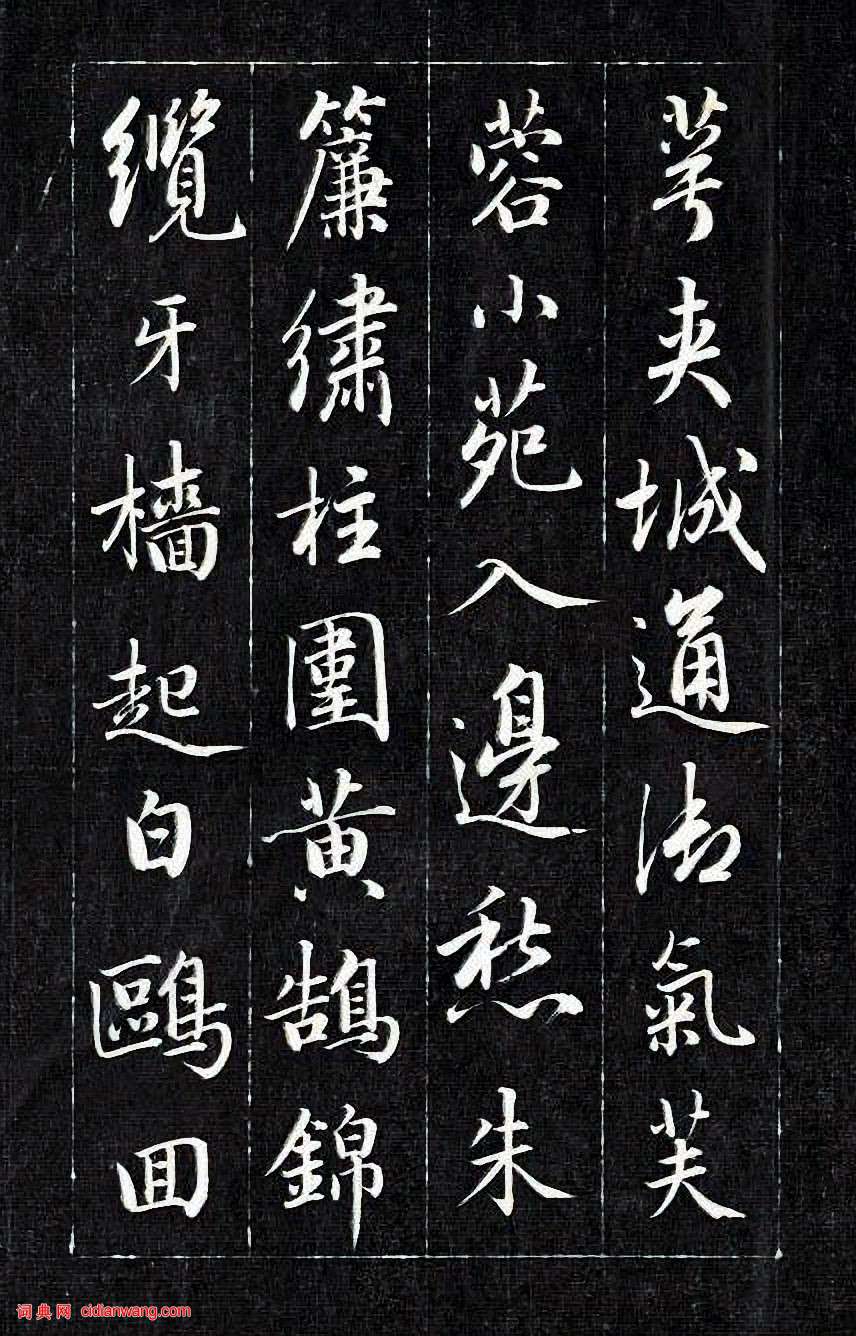 萼夹城通御氣芙
蓉小苑入邊愁朱
簾繡柱圍黄鵠錦
纜牙檣起白鷗囬
词典网 cidianwang.com